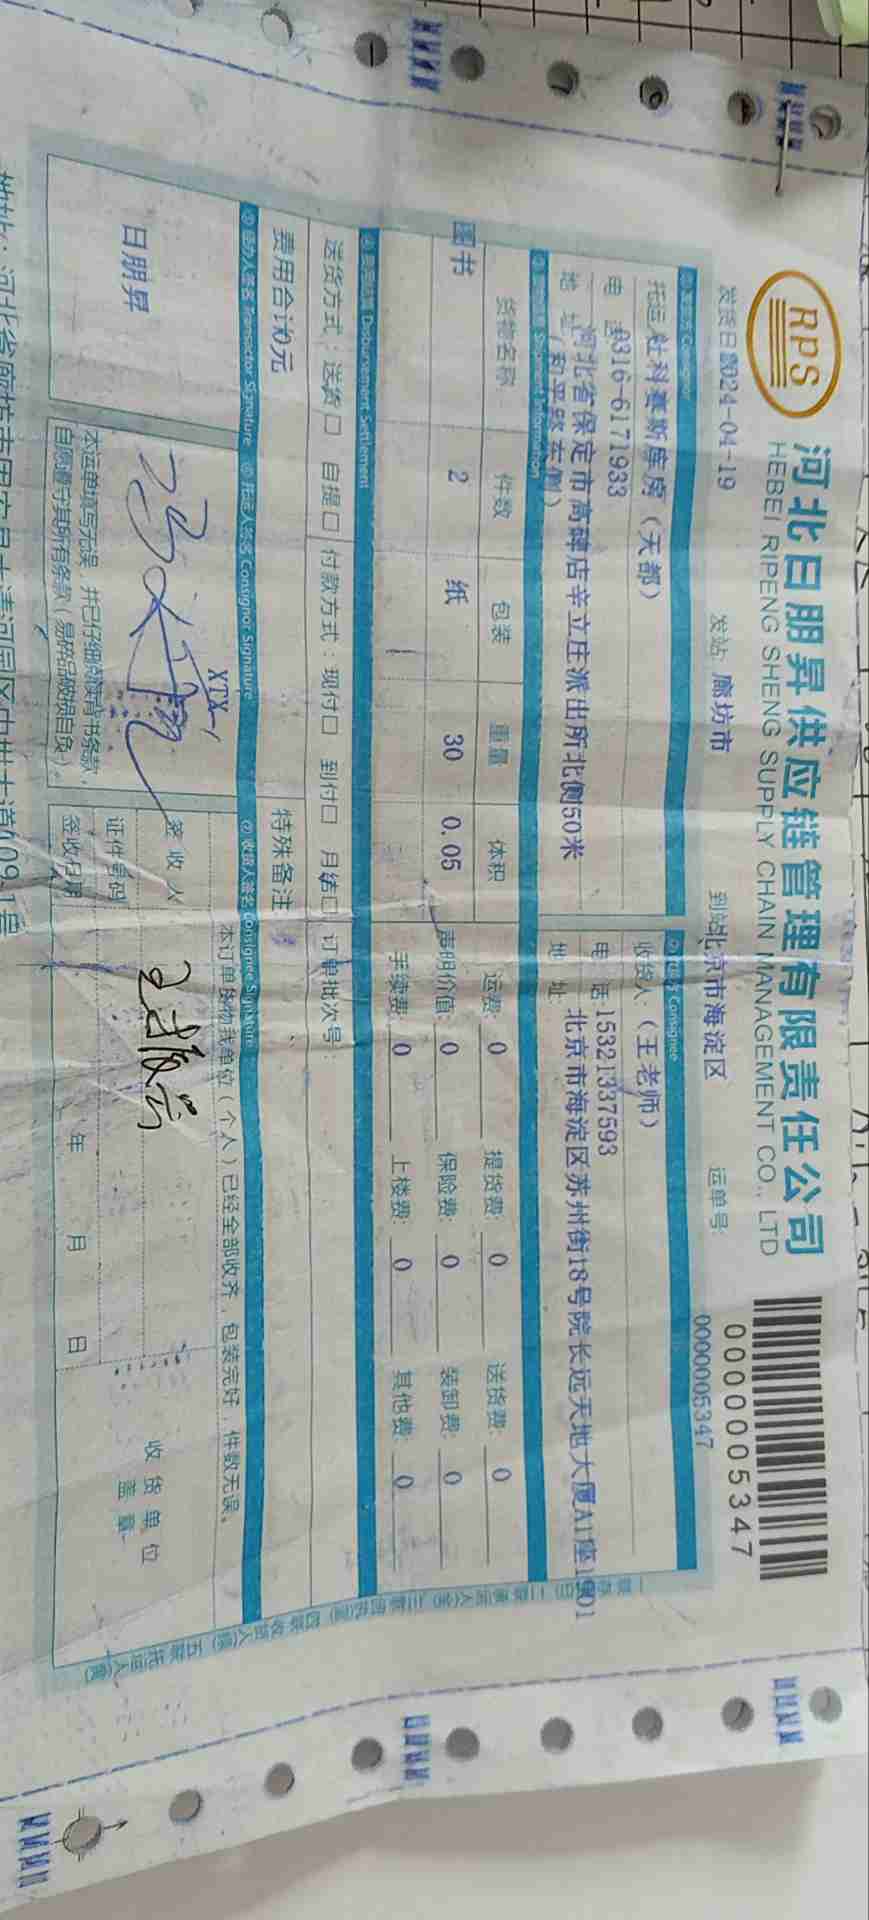 RPS
河北日朋昇供应链管理有限责任公司
HEBEI RIPENG SHENG SUPPLY CHAIN MANAGEMENT CO., LTD
0000005347
发货日 2024-04-19 发站: 廊坊市 到站 北京市海淀区 运单号: 0000005347
托运人 社科赛斯库房（天都）
电 话 0316-6171933
地 址 河北省保定市高碑店辛立庄派出所北侧50米
（和平路东侧）
收货人:（王老师）
电 话 15321337593
地 址: 北京市海淀区苏州街18号院长远天地大厦A1座1901
Shipment Information
货物名称 件数 包装 重量 体积
图书 2 纸 30 0.05
运费: 0 提货费: 0 送货费: 0
声明价值: 0 保险费: 0 装卸费: 0
手续费: 0 上楼费: 0 其他费: 0
Disbursement Settlement
送货方式：送货□ 自提□ 付款方式：现付□ 到付□ 月结□ 订单批次号：
费用合计0元 特殊备注
Transactor Signature ⑥ 托运人签名 Consignor Signature ⑦ 收货人签名 Consignee Signature
日朋昇
XTX-1
本运单填写无误，并已仔细阅读背书条款，
自愿遵守其所有条款（易碎品破损自负）。
本订单货物我单位（个人）已经全部收齐，包装完好，件数无误。
签收人
证件号码
签收日期 年 月 日
收货单位
盖章